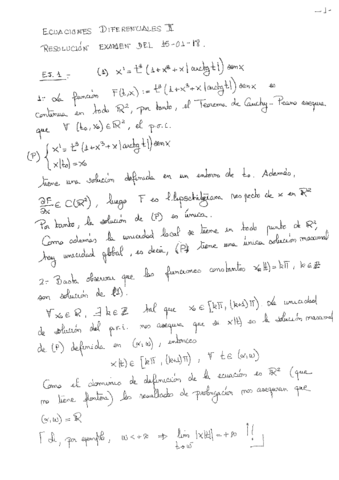 - 1 -
ECUACIONES DIFERENCIALES II
RESOLUCIÓN EXAMEN DEL 15-01-18.
EJ. 1 - (1) x' = t³ (1+x⁴+x|arctg t|) sen x
1- La función F(t,x) := t³ (1+x⁴+x|arctg t|) sen x es
continua en todo ℝ², por tanto, el Teorema de Cauchy-Peano asegura
que ∀ (t₀, x₀) ∈ ℝ², el p.v.i.
(P) { x' = t³ (1+x⁴+x|arctg t|) sen x
x(t₀) = x₀
tiene una solución definida en un entorno de t₀. Además,
∂F/∂x ∈ C(ℝ²), luego F es l. lipschitziana respecto de x en ℝ²
Por tanto, la solución de (P) es única.
Como además la unicidad local se tiene en todo punto de ℝ²,
hay unicidad global, es decir, (P) tiene una única solución maximal
2- Basta observar que las funciones constantes xₖ(t) = kπ, k∈ℤ
son solución de (1).
∀ x₀ ∈ ℝ, ∃ k∈ℤ tal que x₀ ∈ [kπ, (k+1)π) La unicidad
de solución del p.v.i. nos asegura que si x(t) es la solución maximal
de (P) definida en (α, ω), entonces
x(t) ∈ [kπ, (k+1)π), ∀ t ∈ (α, ω)
Como el dominio de definición de la ecuación es ℝ² (que
no tiene frontera) los resultados de prolongación nos aseguran que
(α, ω) = ℝ
[ Si, por ejemplo, ω < +∞ ⇒ lim |x(t)| = +∞ !! ]
t→ω⁻